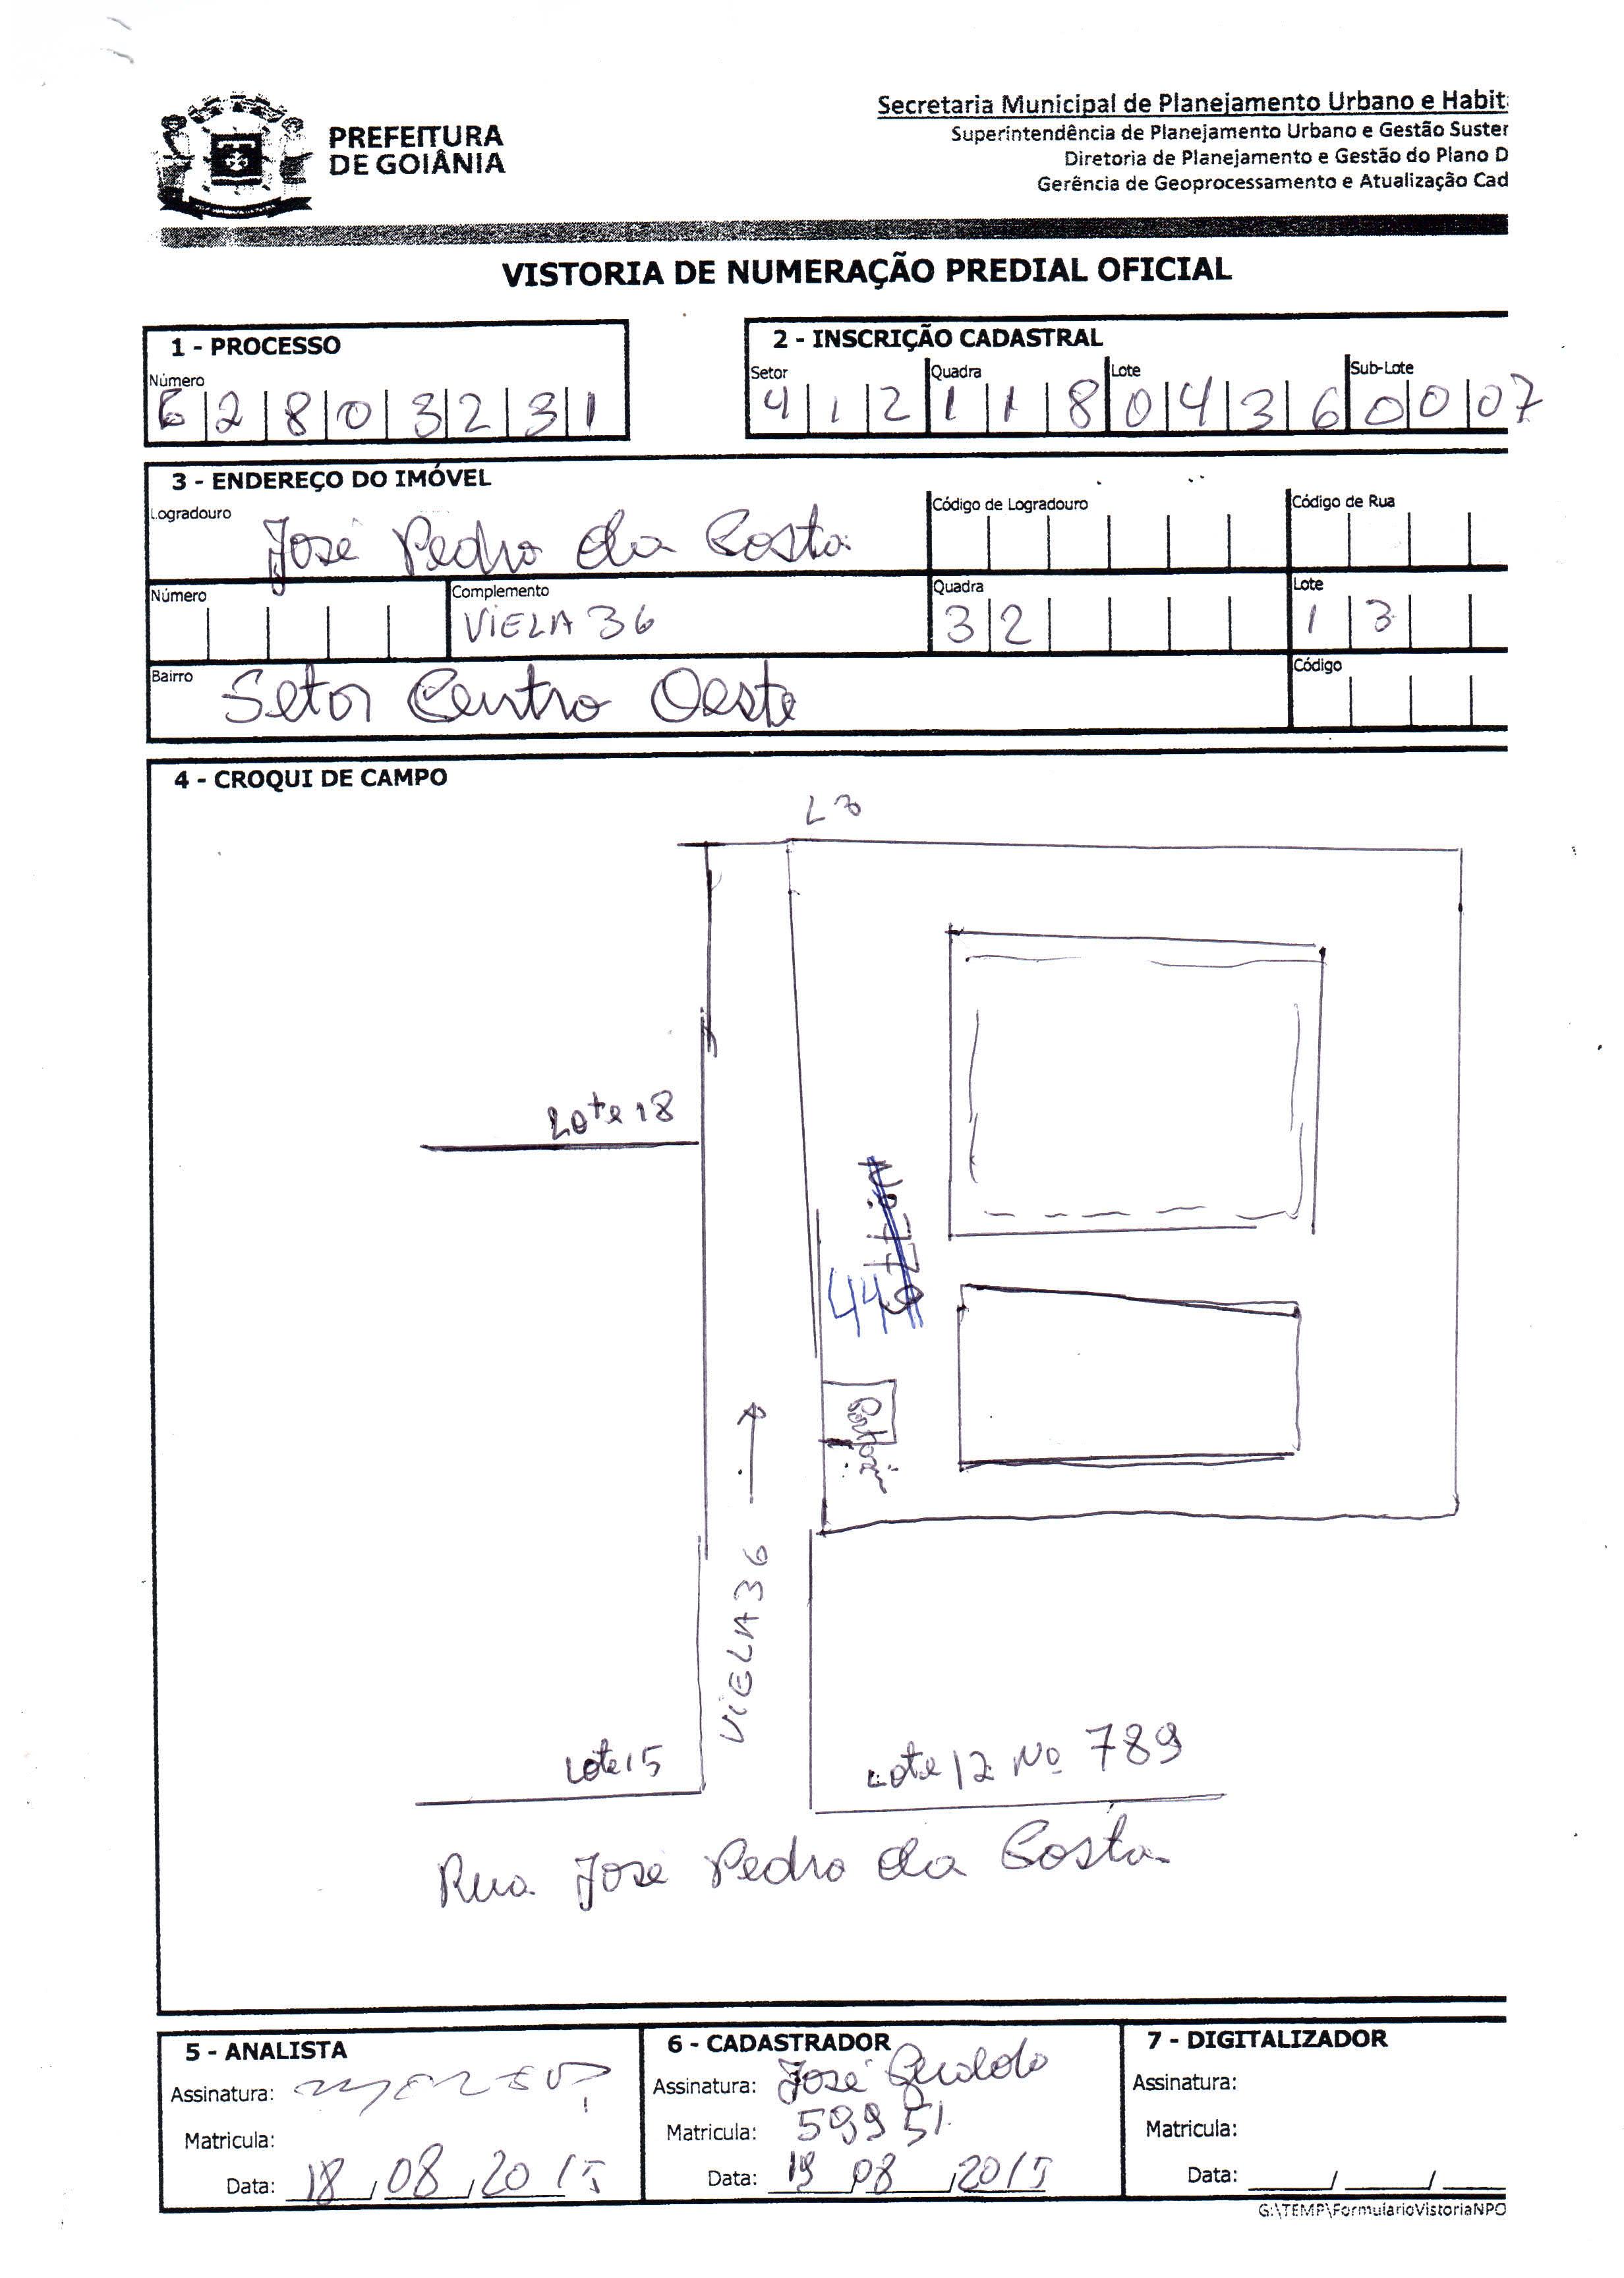 PREFEITURA
DE GOIÂNIA
Secretaria Municipal de Planejamento Urbano e Habit
Superintendência de Planejamento Urbano e Gestão Suster
Diretoria de Planejamento e Gestão do Plano D
Gerência de Geoprocessamento e Atualização Cad
VISTORIA DE NUMERAÇÃO PREDIAL OFICIAL
1 - PROCESSO
Número
6 2 8 0 3 2 3 1
2 - INSCRIÇÃO CADASTRAL
Setor Quadra Lote Sub-Lote
4 1 2 1 1 8 0 4 3 6 0 0 0 7
3 - ENDEREÇO DO IMÓVEL
Logradouro José Pedro da Costa Código de Logradouro Código de Rua
Número Complemento Quadra Lote
VIELA 36 3 2 1 3
Bairro Setor Centro Oeste Código
4 - CROQUI DE CAMPO
Lote 18
449
Portão
VIELA 36
Lote 15
Lote 12 Nº 789
Rua José Pedro da Costa
5 - ANALISTA
Assinatura:
Matricula:
Data: 18/08/2015
6 - CADASTRADOR
Assinatura: José
Matricula: 59951
Data: 19 08/2015
7 - DIGITALIZADOR
Assinatura:
Matricula:
Data: ____/____/____
G:\TEMP\FormularioVistoriaNPO